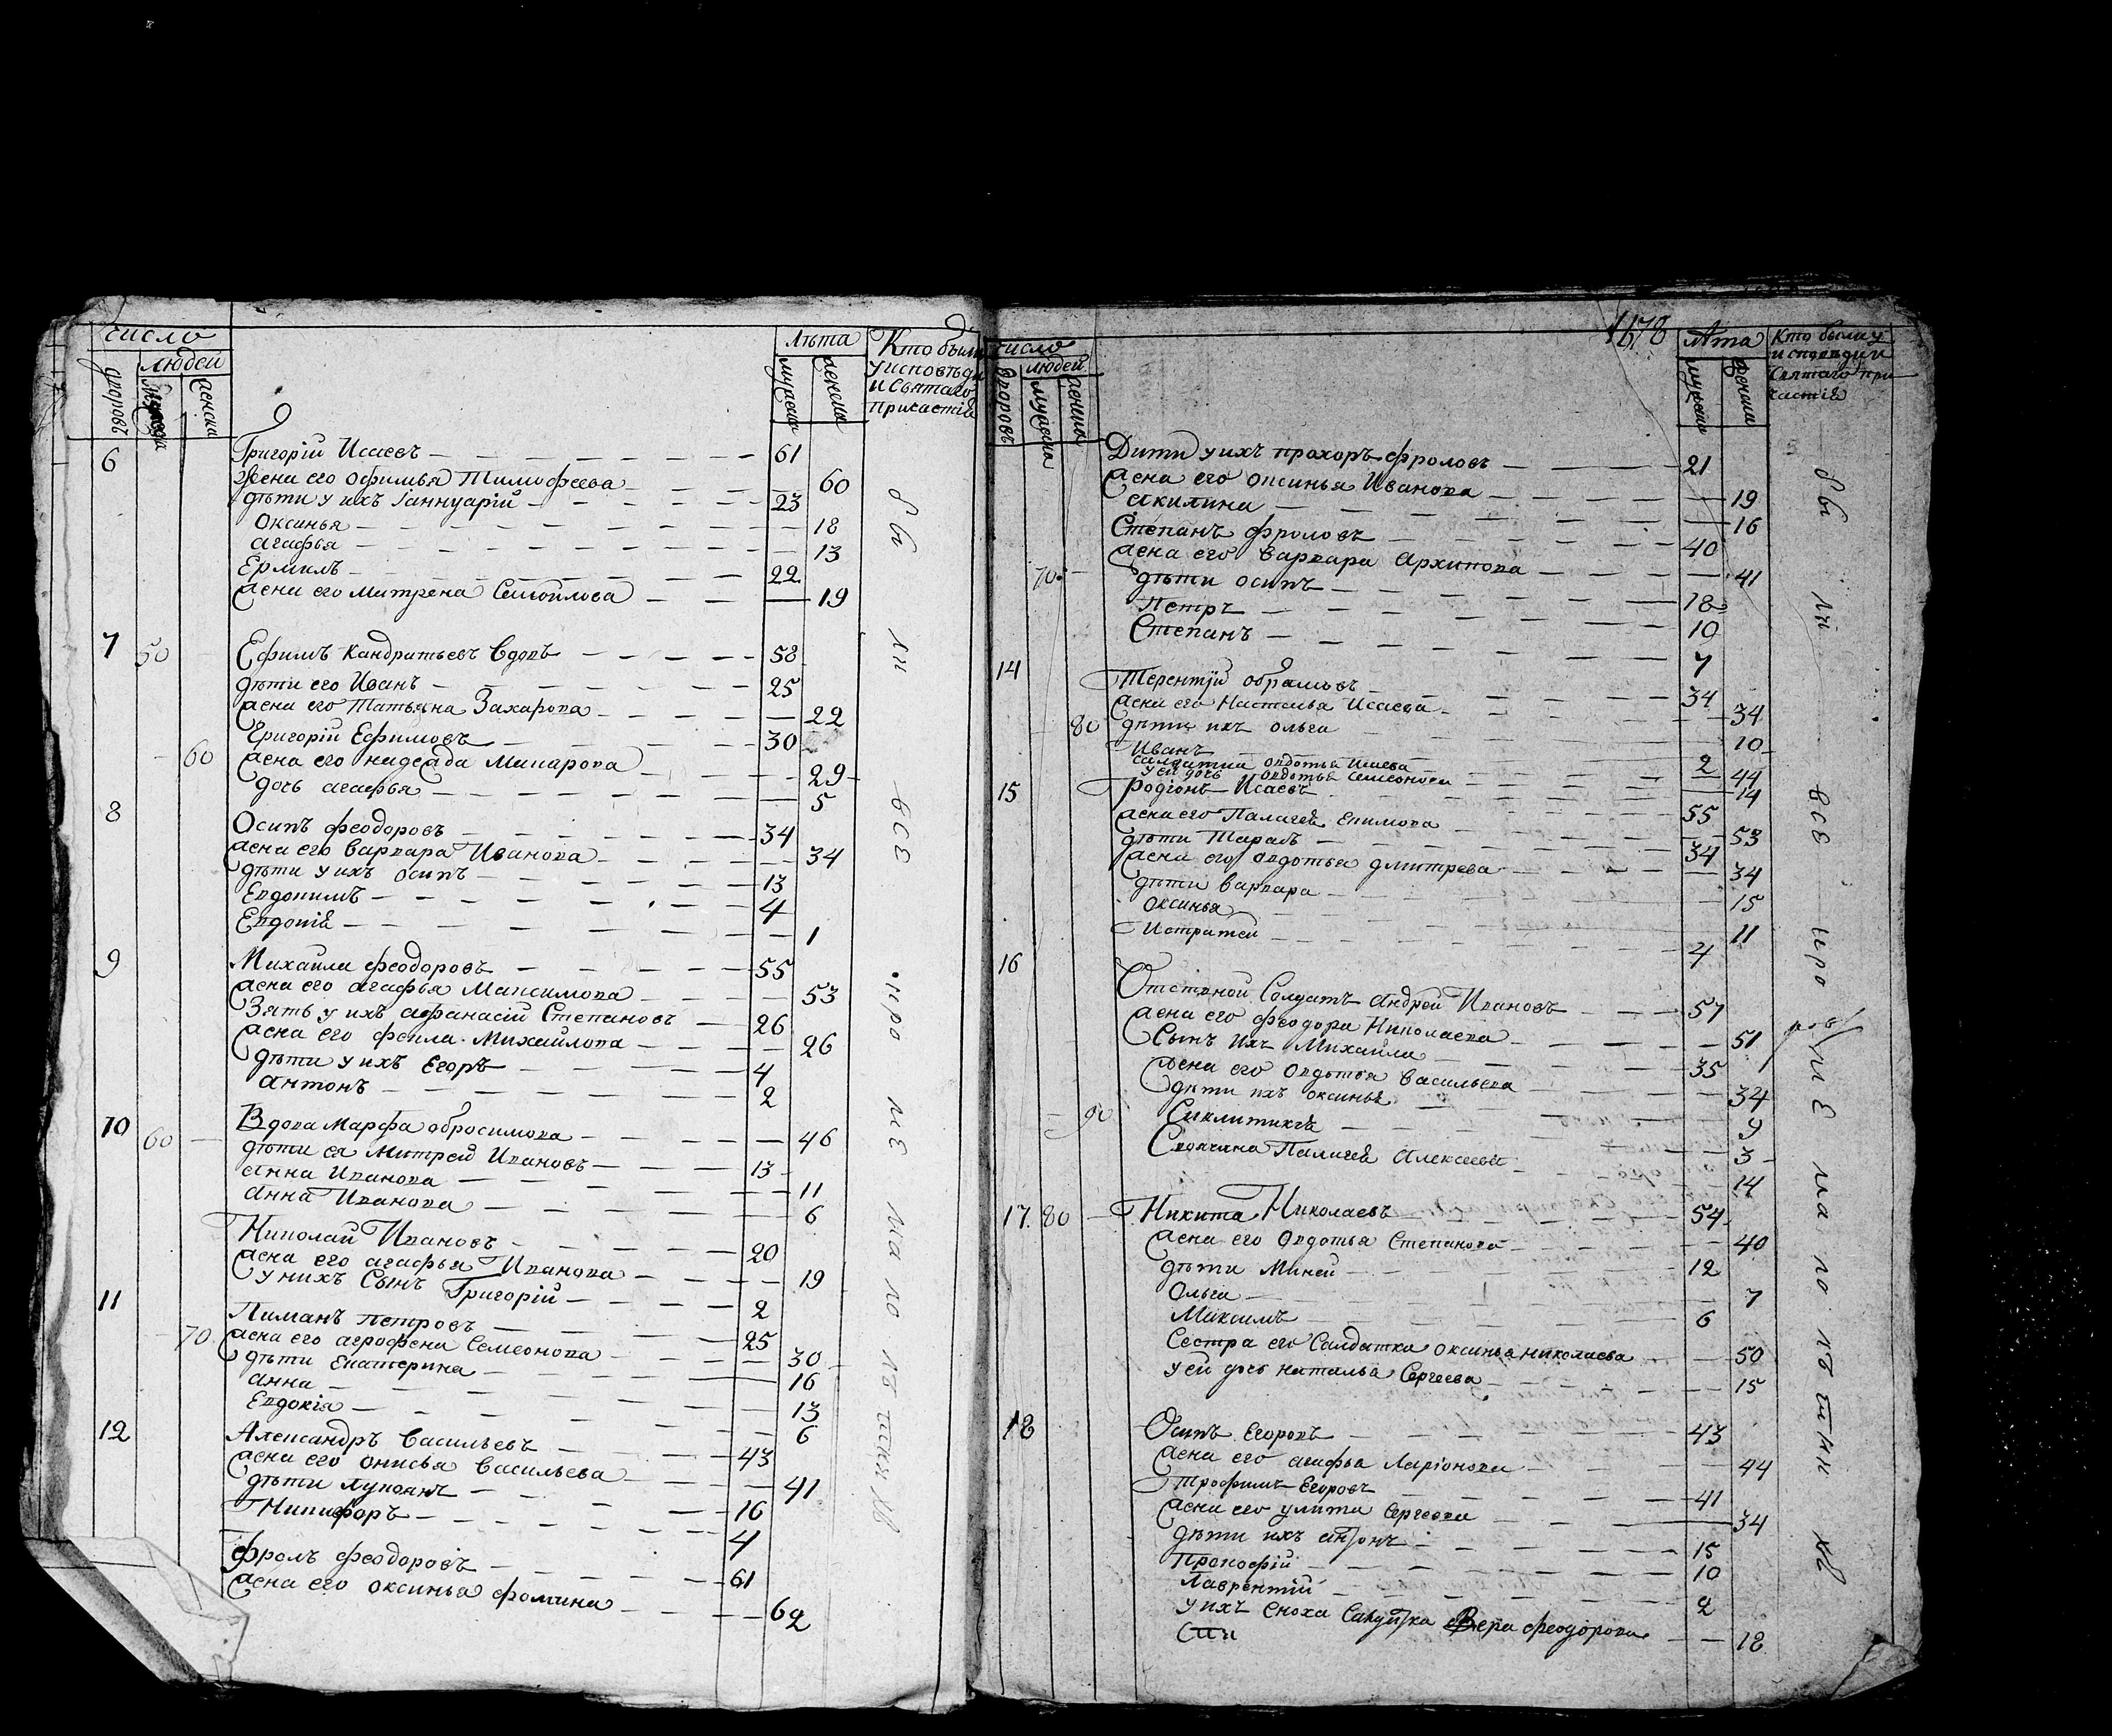 число
людей
дворовъ
мужеска
женска
лѣта
мужеска
женска
Кто были
у исповѣди
и святаго
причастия
6 Григорій Исаевъ 61
Жена его Офимья Тимофеева 60
дѣти у ихъ Іаннуарій 23
Оксинья 18
агафья 13
Ермилъ 22
жена его Митрена Самойлова 19
7 50 Ефимъ Кандратьевъ вдовъ 58
дѣти его Иванъ 25
жена его Татьяна Захарова 22
Григорій Ефимовъ 30
60 жена его надежда Макарова 29
дочь агафья 5
8 Осипъ феодоровъ 34
жена его варвара Иванова 34
дѣти у ихъ осипъ 13
Евдокимъ 4
Евдокия 1
9 Михаила феодоровъ 55
жена его агафья Максимова 53
Зять у ихъ афанасій Степановъ 26
жена его фекла Михайлова 26
дѣти у ихъ Егоръ 4
антонъ 2
10 60 Вдова Марфа обросимова 46
дѣти ея Митрей Ивановъ 13
анна Иванова 11
анна Иванова 6
Николай Ивановъ 20
жена его агафья Иванова 19
у нихъ Сынъ Григорій 2
11 Лиманъ петровъ 25
70 жена его агрофена Семеонова 30
дѣти Екатерина 16
анна 13
Евдокія 6
12 Александръ васильевъ 43
жена его онисья васильева 41
дѣти Лукеянъ 16
Никифоръ 4
фролъ феодоровъ 61
жена его оксинья фомина 62
бы ли все
1678
число
людей
дворовъ
мужеска
женска
лѣта
мужеска
женска
Кто были у
исповѣди и
святаго при
частия
Дити у ихъ прохоръ фроловъ 21
жена его оксинья Иванова 19
акилина 16
Степанъ фроловъ 40
жена его варвара Архипова 41
70 дѣти осипъ 18
Петръ 10
Степанъ 7
14 Терентій обрамовъ 34
жена его Настасья Исаева 34
80 дѣти ихъ ольга 10
Иванъ 2
салдатка овдотья Исаева 44
у ей дочь овдотья Семеонова 14
15 Родіонъ Исаевъ 55
жена его Палагея Екимова 53
дѣти Тарасъ 34
жена его овдотья дмитрева 34
дѣти варвара 15
оксинья 11
Истратей 4
16 Отставной Салдатъ андрей Ивановъ 57
жена его феодора Николаева 51
Сынъ ихъ Михайла 35
жена его овдотья васильева 34
дѣти ихъ оксинья 9
90 Сиклитикѣя 3
Своячина Палагея Алексеева 14
17. 80 Никита Николаевъ 54
жена его Овдотья Степанова 40
дѣти Миней 12
Ольга 7
Максимъ 6
Сестра его Салдатка оксинья николаева 50
у ей дочь наталья Сергеева 15
18 Осипъ Егоровъ 43
жена его агафья Ларіонова 44
Трофимъ Егоровъ 41
жена его улита Сергеева 34
дѣти ихъ антонъ 15
Прокофій 10
Лаврентій 2
у ихъ сноха Салдатка Вера феодорова 18
бы ли все